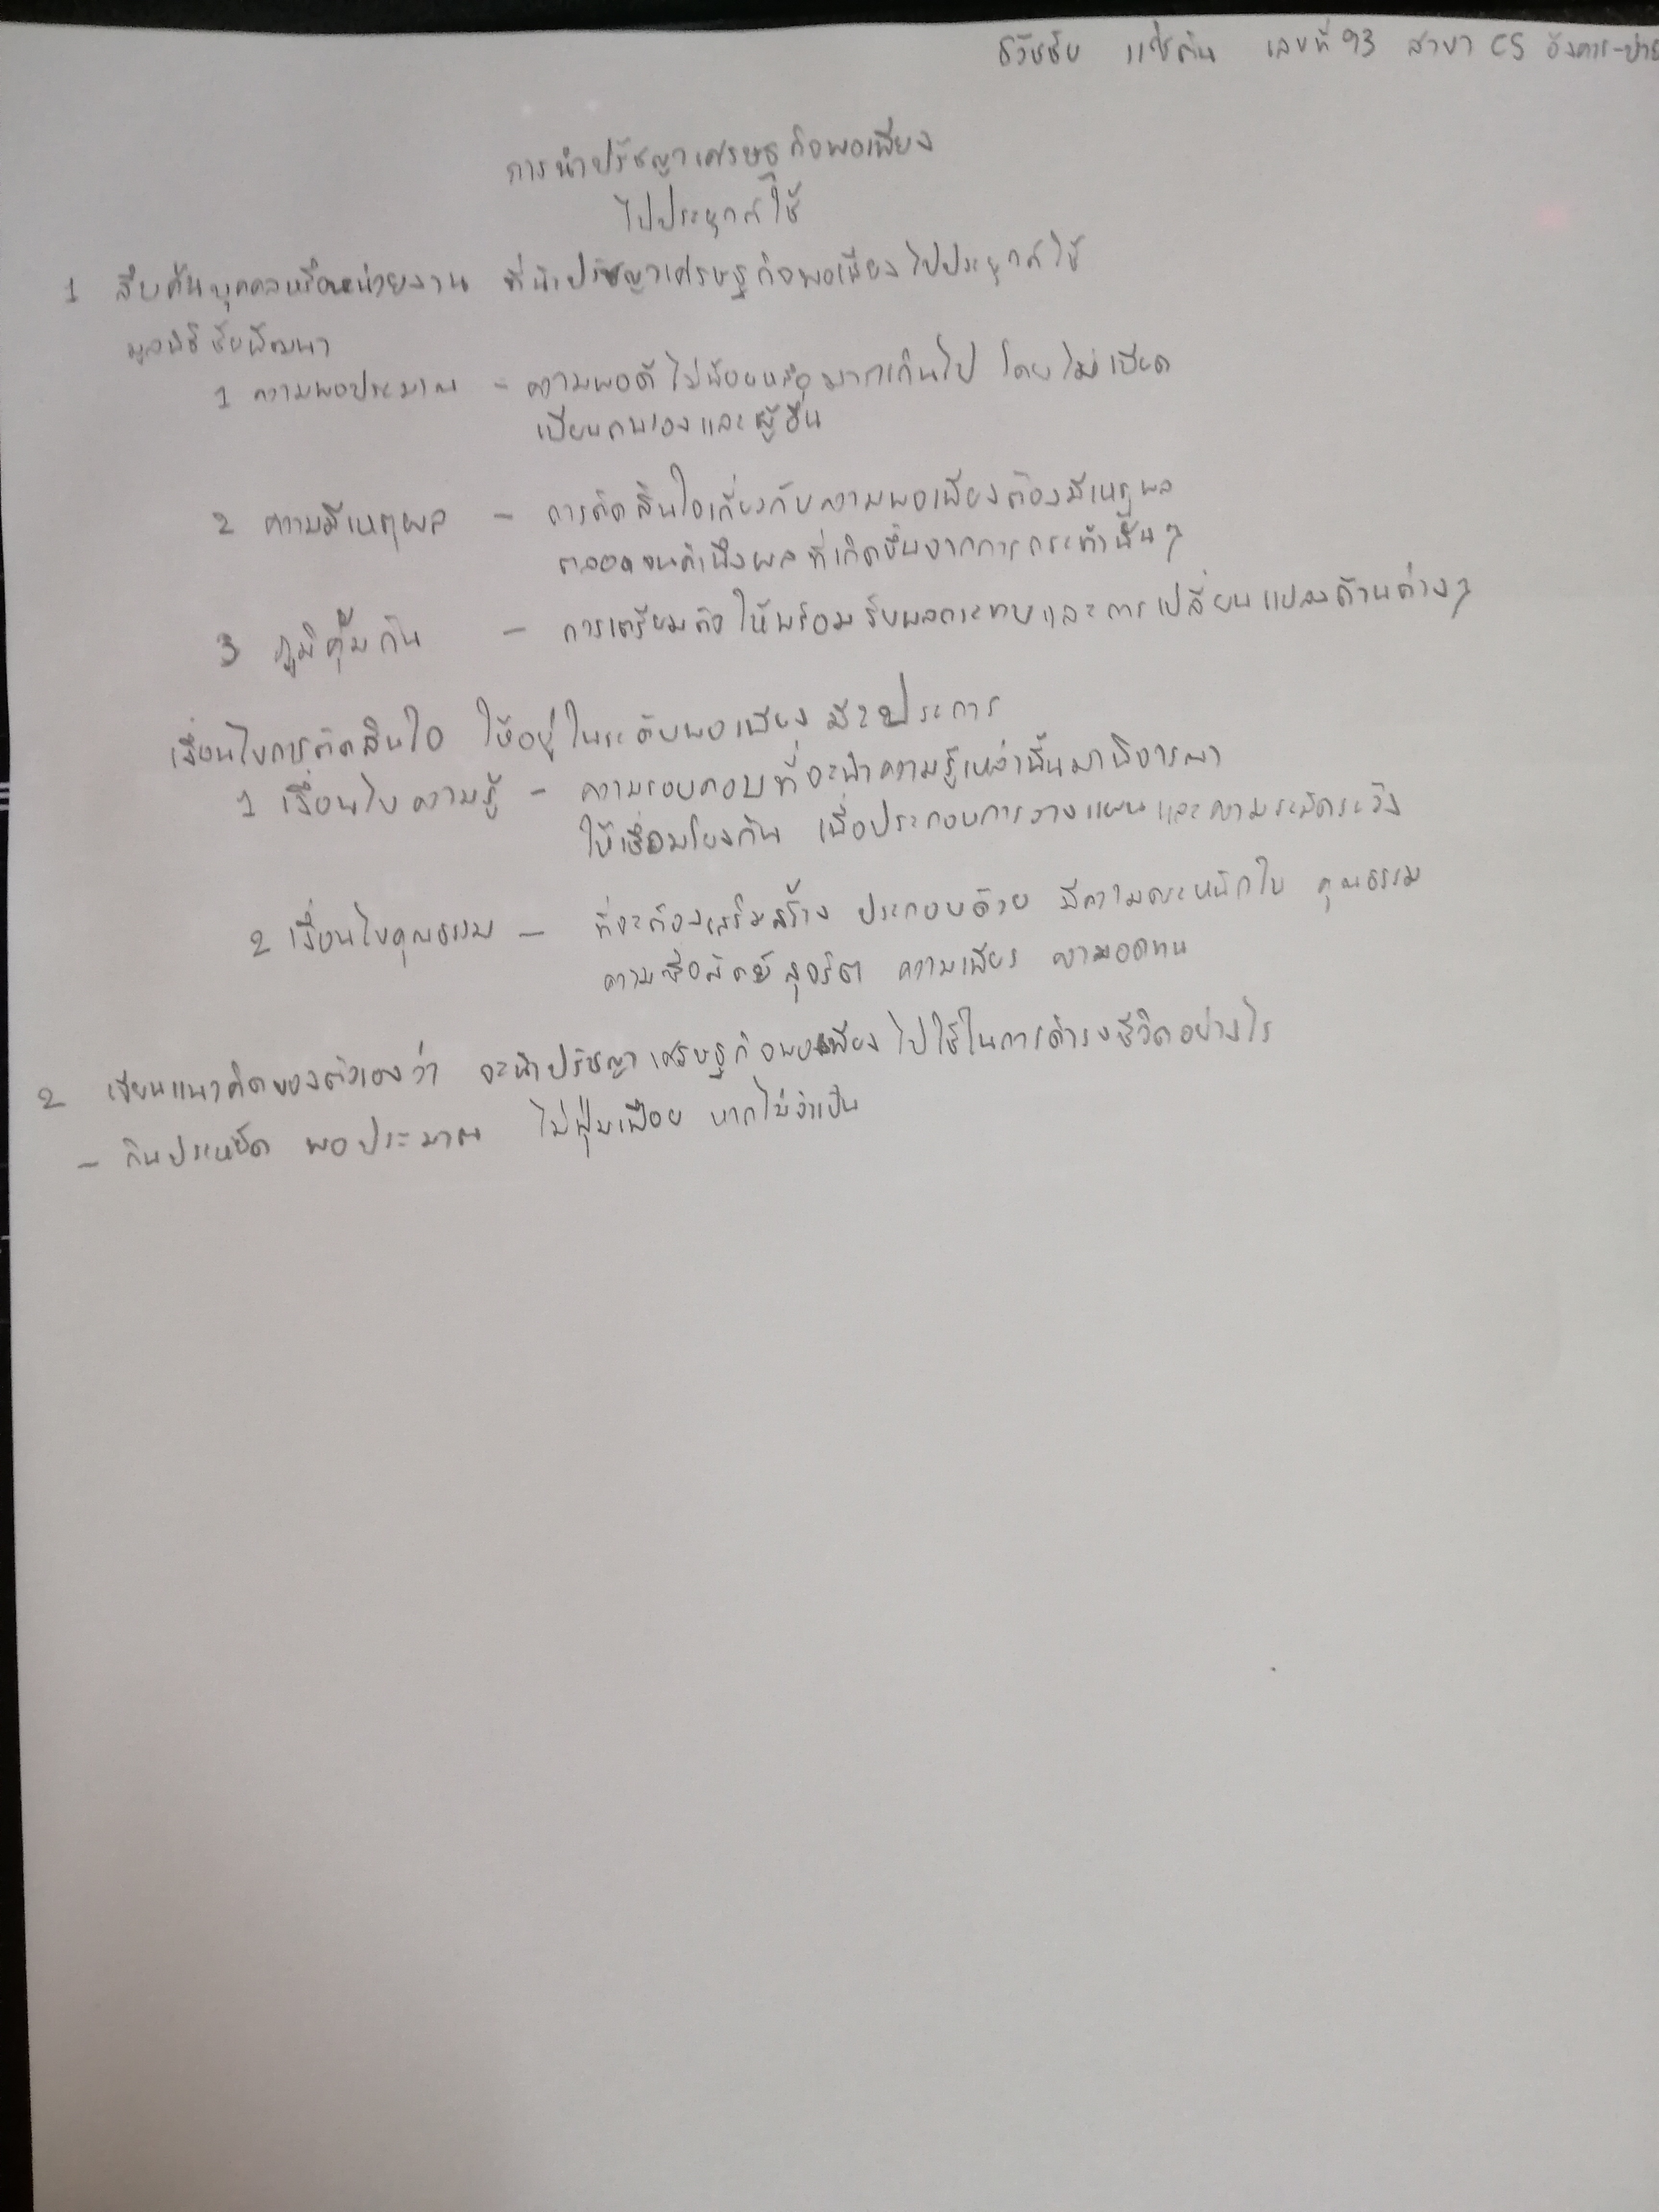 ธวัชชัย แซ่ตัน เลขที่ 93 สาขา CS อังคาร-บ่าย
การนำปรัชญาเศรษฐกิจพอเพียง
ไปประยุกต์ใช้
1 สืบค้นบุคคลหรือหน่วยงาน ที่นำปรัชญาเศรษฐกิจพอเพียงไปประยุกต์ใช้
มูลนิธิชัยพัฒนา
1 ความพอประมาณ - ความพอดี ไม่น้อยหรือมากเกินไป โดยไม่เบียด
เบียนตนเองและผู้อื่น
2 ความมีเหตุผล - การตัดสินใจเกี่ยวกับความพอเพียงต้องมีเหตุผล
ตลอดจนคำนึงผลที่เกิดขึ้นจากการกระทำนั้นๆ
3 ภูมิคุ้มกัน - การเตรียมตัวให้พร้อมรับผลกระทบและการเปลี่ยนแปลงด้านต่างๆ
เงื่อนไขการตัดสินใจ ให้อยู่ในระดับพอเพียง มี 2 ประการ
1 เงื่อนไขความรู้ - ความรอบคอบที่จะนำความรู้เหล่านั้นมาพิจารณา
ให้เชื่อมโยงกัน เพื่อประกอบการวางแผนและความระมัดระวัง
2 เงื่อนไขคุณธรรม - ที่จะต้องเสริมสร้าง ประกอบด้วย มีความตระหนักใน คุณธรรม
ความซื่อสัตย์สุจริต ความเพียร ความอดทน
2 เขียนแนวคิดของตัวเองว่า จะนำปรัชญาเศรษฐกิจพอเพียงไปใช้ในการดำรงชีวิตอย่างไร
- กินประหยัด พอประมาณ ไม่ฟุ่มเฟือย หากไม่จำเป็น